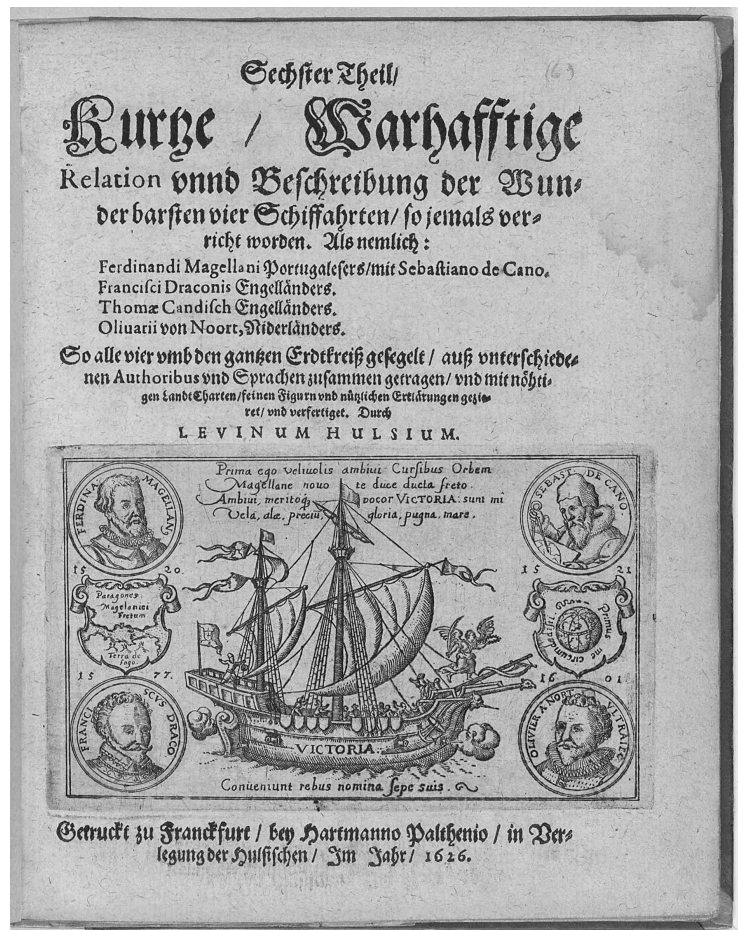 (6)
Sechster Theil/
Kurtze / Warhafftige
Relation vnnd Beschreibung der Wun-
derbarsten vier Schiffahrten/ so jemals ver-
richt worden. Als nemlich:
Ferdinandi Magellani Portugalesers/mit Sebastiano de Cano.
Francisci Draconis Engelländers.
Thomæ Candisch Engelländers.
Oliuarii von Noort, Niderländers.
So alle vier vmb den gantzen Erdtkreiß gesegelt / auß vnterschiede-
nen Authoribus vnd Sprachen zusammen getragen/ vnd mit nöhti-
gen Landt Charten/feinen Figurn vnd nützlichen Erklärungen gezie-
ret/ vnd verfertiget. Durch
LEVINUM HULSIUM.
Prima ego velivolis ambivi Cursibus Orbem
Magellane novo te duce ducta freto.
Ambivi, meritoq, vocor VICTORIA: sunt mi
Vela, alæ, preciũ, gloria, pugna, mare.
FERDINA: MAGELLANG
SEBAST. DE CANO.
15 20.
15 21
Patagones.
Magelanici
Fretum
Terra de
fogo.
Primus me circumdedisti
15 77.
16 01
FRANCISCVS DRACO
OLIVIER A NORT VLTRAIEC
VICTORIA.
Conveniunt rebus nomina sepe suis.
Getruckt zu Franckfurt / bey Hartmanno Palthenio / in Ver-
legung der Hulsischen/ Im Jahr/ 1626.